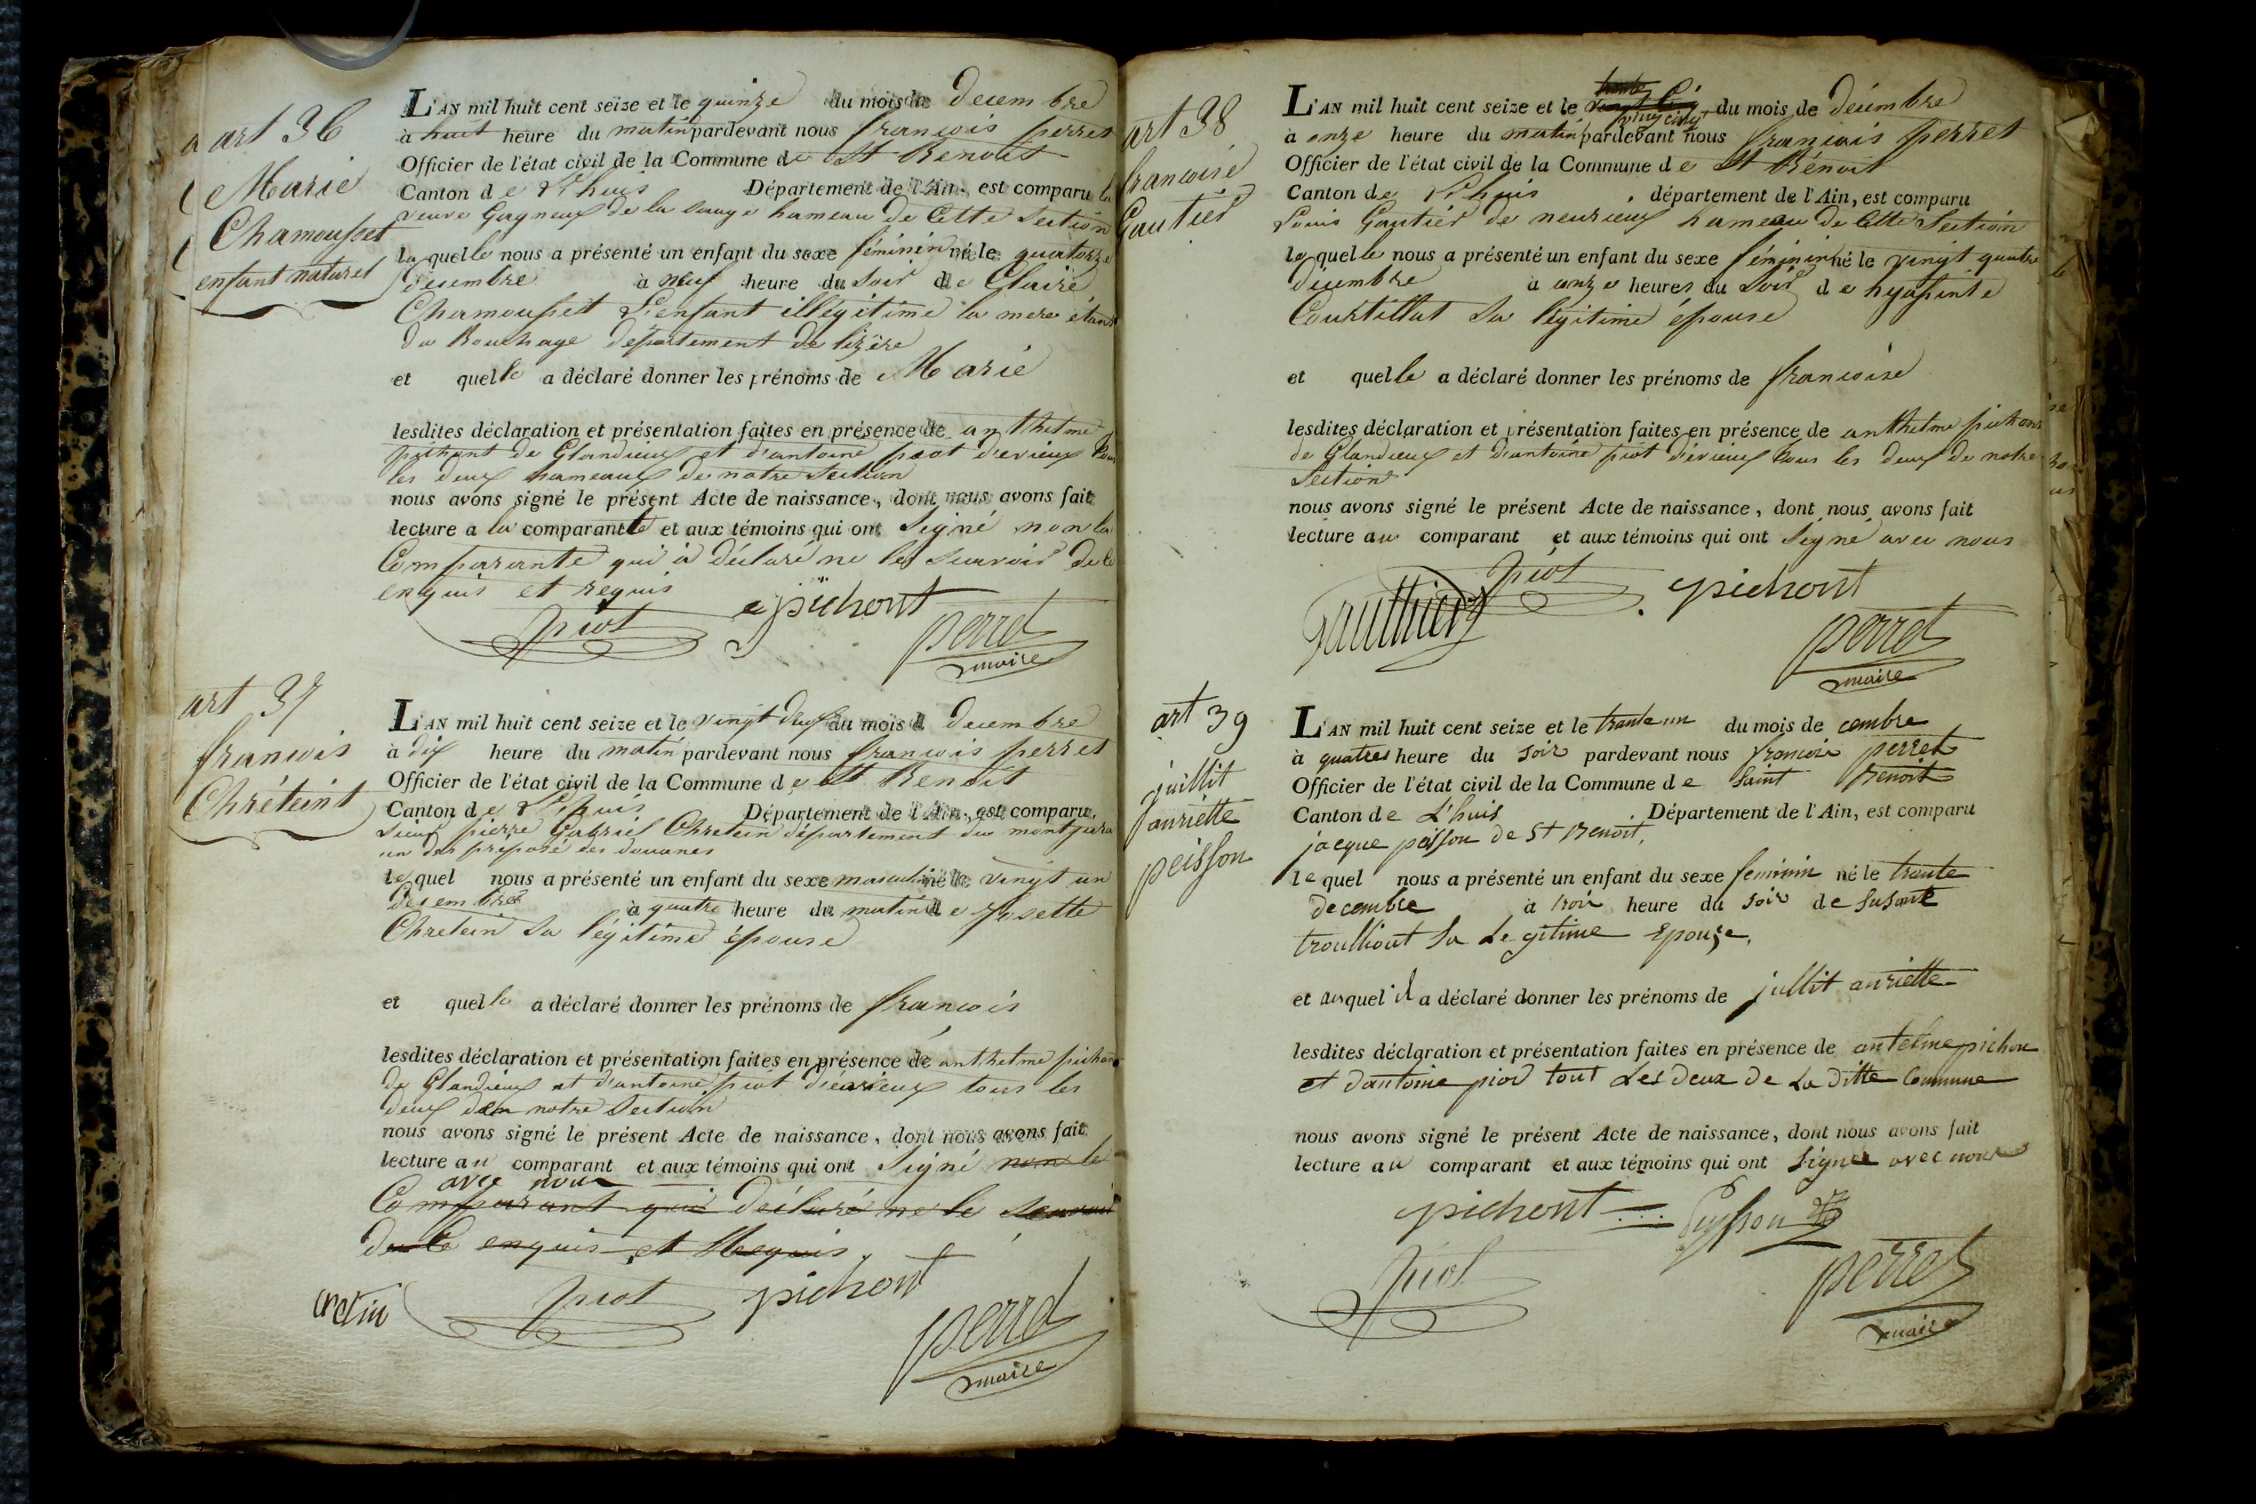 art 36
Marie
Chamousset
enfant naturel
L'AN mil huit cent seize et le quinze du mois de decembre
à huit heure du matin pardevant nous francois perret
Officier de l'état civil de la Commune de St Benoit
Canton de L'huis Département de l'Ain, est comparu la
veuve Gagneux de la Sauge hameau de Cette Section
laquelle nous a présenté un enfant du sexe féminin né le quatorze
décembre à neuf heure du soir de Claire
Chamousset L'enfant illégitime la mere étant
du Bouchage département de lizère
et quelle a déclaré donner les prénoms de Marie
lesdites déclaration et présentation faites en présence de anthelme
pichont de Glandieux et d'antoine piot d'evieux tous
les deux hameaux de notre Section
nous avons signé le présent Acte de naissance, dont nous avons fait
lecture a la comparantte et aux témoins qui ont Signé non la
Comparante qui a déclaré ne les Scavoir de ce
enquis et requis
piot pichont
perret
maire
art 37
francois
Chréteint
L'AN mil huit cent seize et le vingt deux du mois d decembre
à dix heure du matin pardevant nous francois perret
Officier de l'état civil de la Commune de St Benoit
Canton de L'huis Département de l'Ain, est comparu,
Sieur pierre Gabriel Chretein département du mont jura
un des préposé des douanes
lequel nous a présenté un enfant du sexe masculin né le vingt un
décembre à quatre heure du matin de rosette
Chretein Sa légitime épouse
et quelle a déclaré donner les prénoms de francois
lesdites déclaration et présentation faites en présence de anthelme pichon
de Glandieux et d'antoine piot d'évieux tous les
deux de notre Section
nous avons signé le présent Acte de naissance, dont nous avons fait
lecture au comparant et aux témoins qui ont Signé non le
avec nous
Comparant qui déclaré ne le Scavoir
de Ce enquis et Requis
cretin piot pichont
perret
maire
art 38
francoise
Gautier
L'AN mil huit cent seize et le vingt cinq du mois de décembre
à onze heure du matin pardevant nous francois perret
Officier de l'état civil de la Commune de St Bénoit
Canton de L'huis département de l'Ain, est comparu
Louis Gautier de neurieux hameau de Cette Section
laquelle nous a présenté un enfant du sexe féminin né le vingt quatre
décembre à onze heures du Soir de hyasinte
Courtillat Sa légitime épouse
et quelle a déclaré donner les prénoms de francoise
lesdites déclaration et présentation faites en présence de anthelme pichont
de Glandieux et d'antoine piot d'évieux tous les deux de notre
Section
nous avons signé le présent Acte de naissance, dont nous avons fait
lecture au comparant et aux témoins qui ont Signé avec nous
gautthier piot pichont
perret
maire
art 39
juillit
anriette
peisson
L'AN mil huit cent seize et le trante un du mois de cembre
à quatres heure du soir pardevant nous francoi perret
Officier de l'état civil de la Commune de saint benoit
Canton de L'huis Département de l'Ain, est comparu
jacque peisson de St Benoit,
lequel nous a présenté un enfant du sexe feminin né le trante
decembre à troi heure du soir de susante
troulliout Sa Legitime Epouze,
et auquel il a déclaré donner les prénoms de jullit anriette
lesdites déclaration et présentation faites en présence de antelme pichon
et dantoine piod tout Les deux de La ditte Commune
nous avons signé le présent Acte de naissance, dont nous avons fait
lecture au comparant et aux témoins qui ont Signer avec nous
pichont Peysson
piot perret
maire